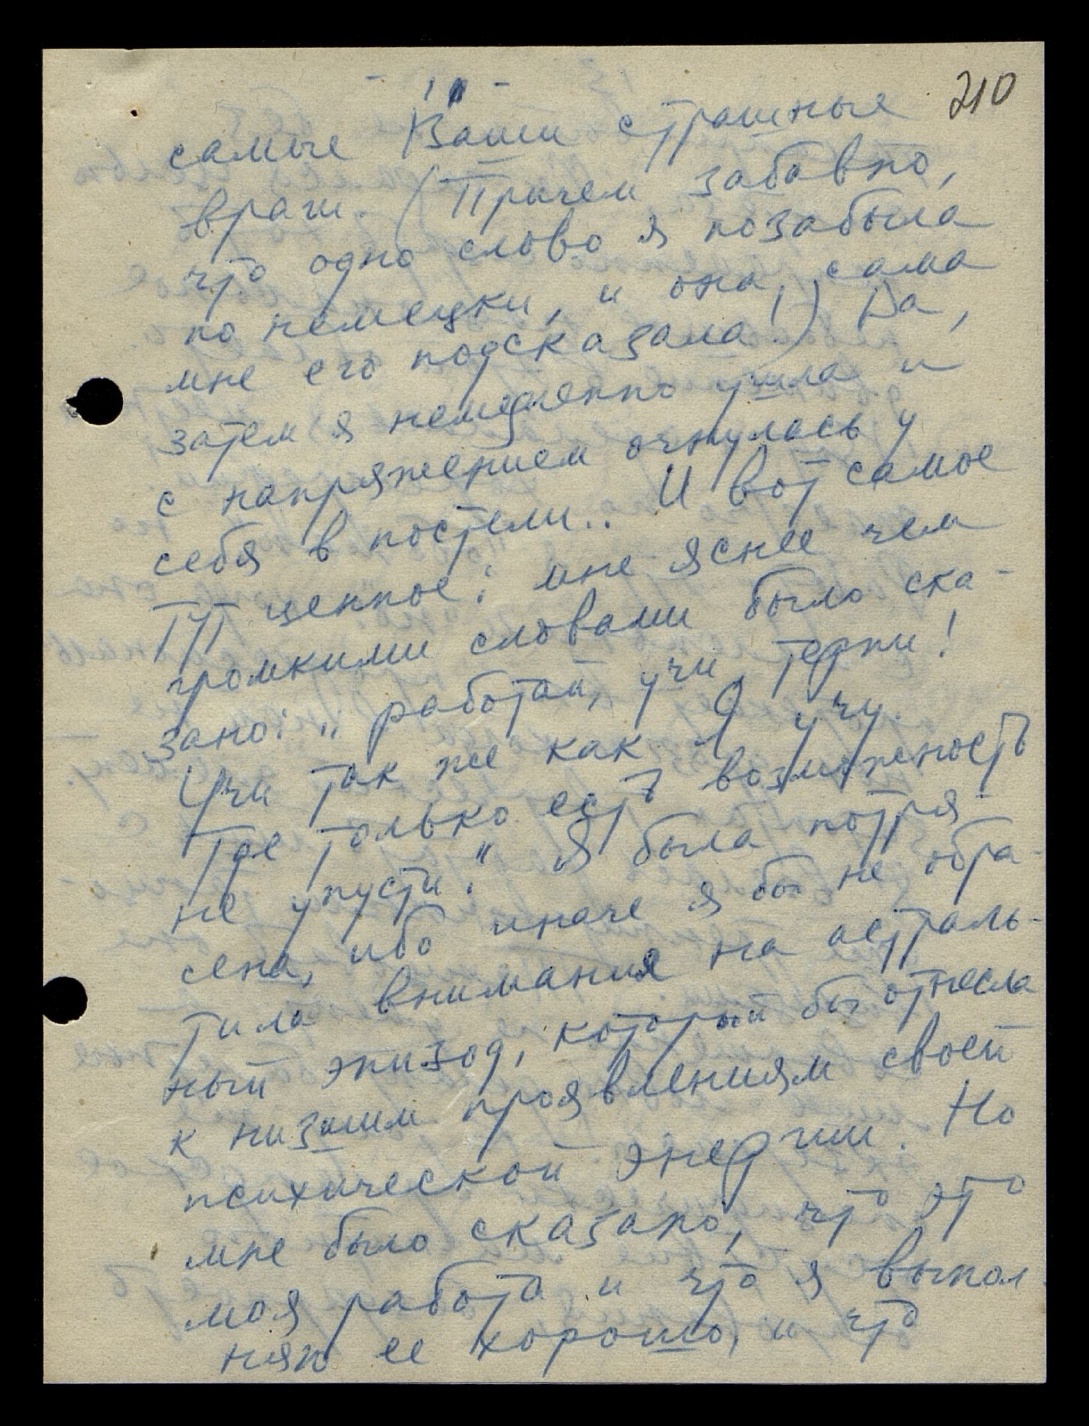 210
самые Ваши страшные
враги. (Причем забавно,
что одно слово я позабыла
по немецки, и она сама
мне его подсказала!) Да,
затем я немедленно ушла и
с напряжением очнулась у
себя в постели.. И вот самое
ценное: мне яснее чем
громкими словами было ска-
зано: „работай, учи, терпи!
Учи так же как Я учу.
Где только есть возможность
не упусти." Я была потря-
сена, ибо иначе я бы не обра-
тила внимания на астраль-
ный эпизод, который бы отнесла
к низшим проявлениям своей
психической энергии. Но
мне было сказано, что это
моя работа и что я выпол
няю ее хорошо, и что